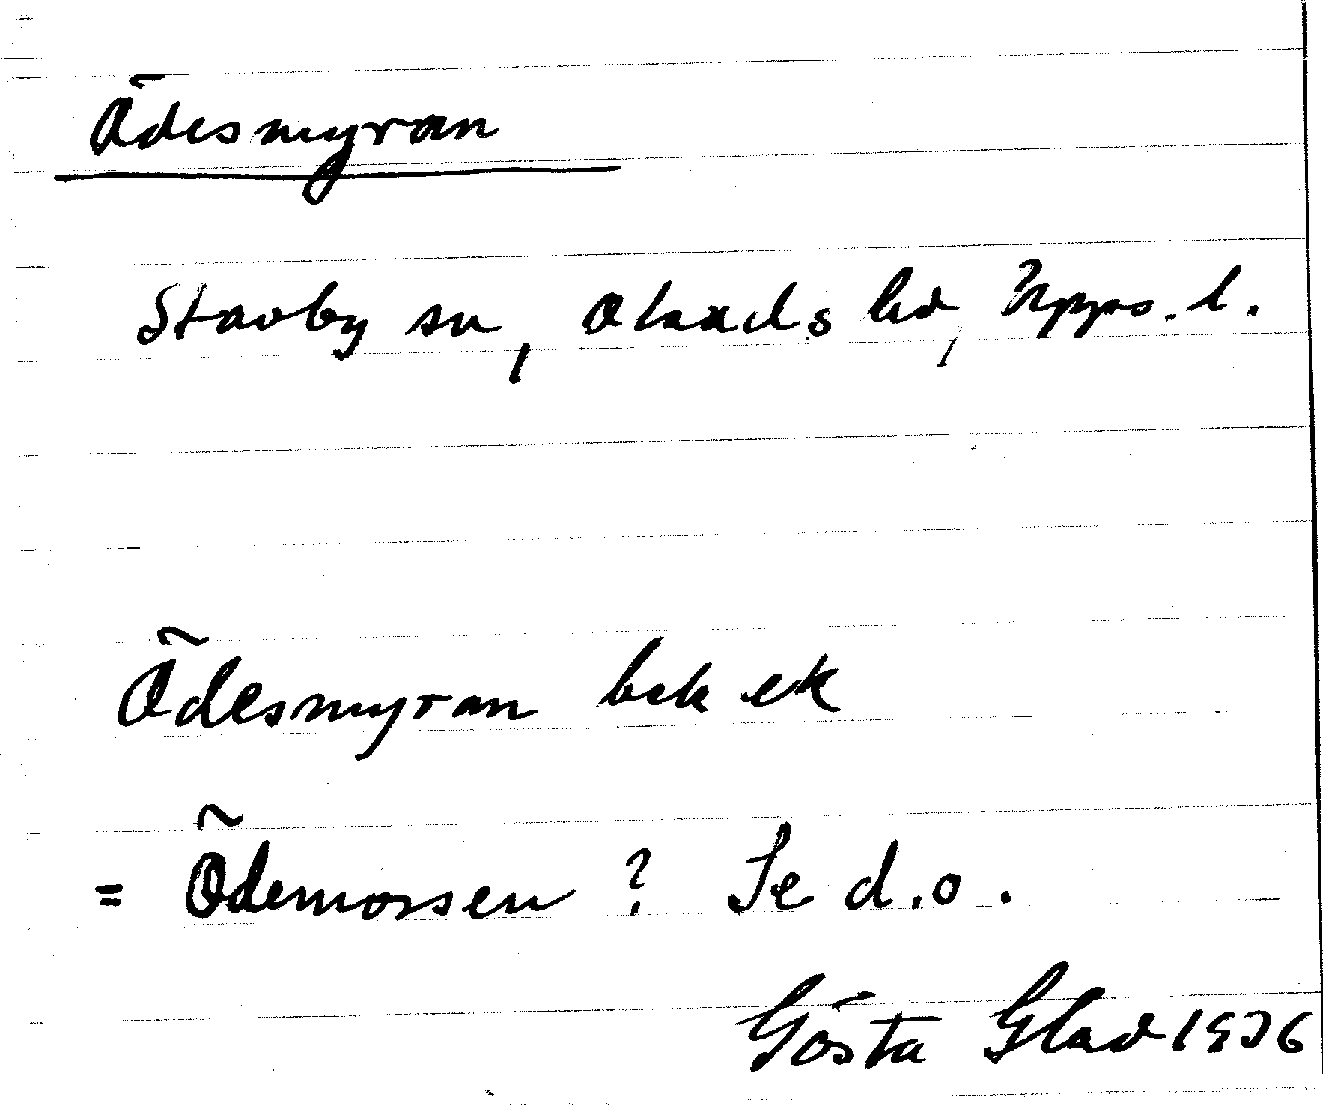 Ödesmyran
Stavby sn, Olands hd, Upps. l.
Ödesmyran bek ek
= Ödemossen ? Se d.o.
Gösta Glad 1936